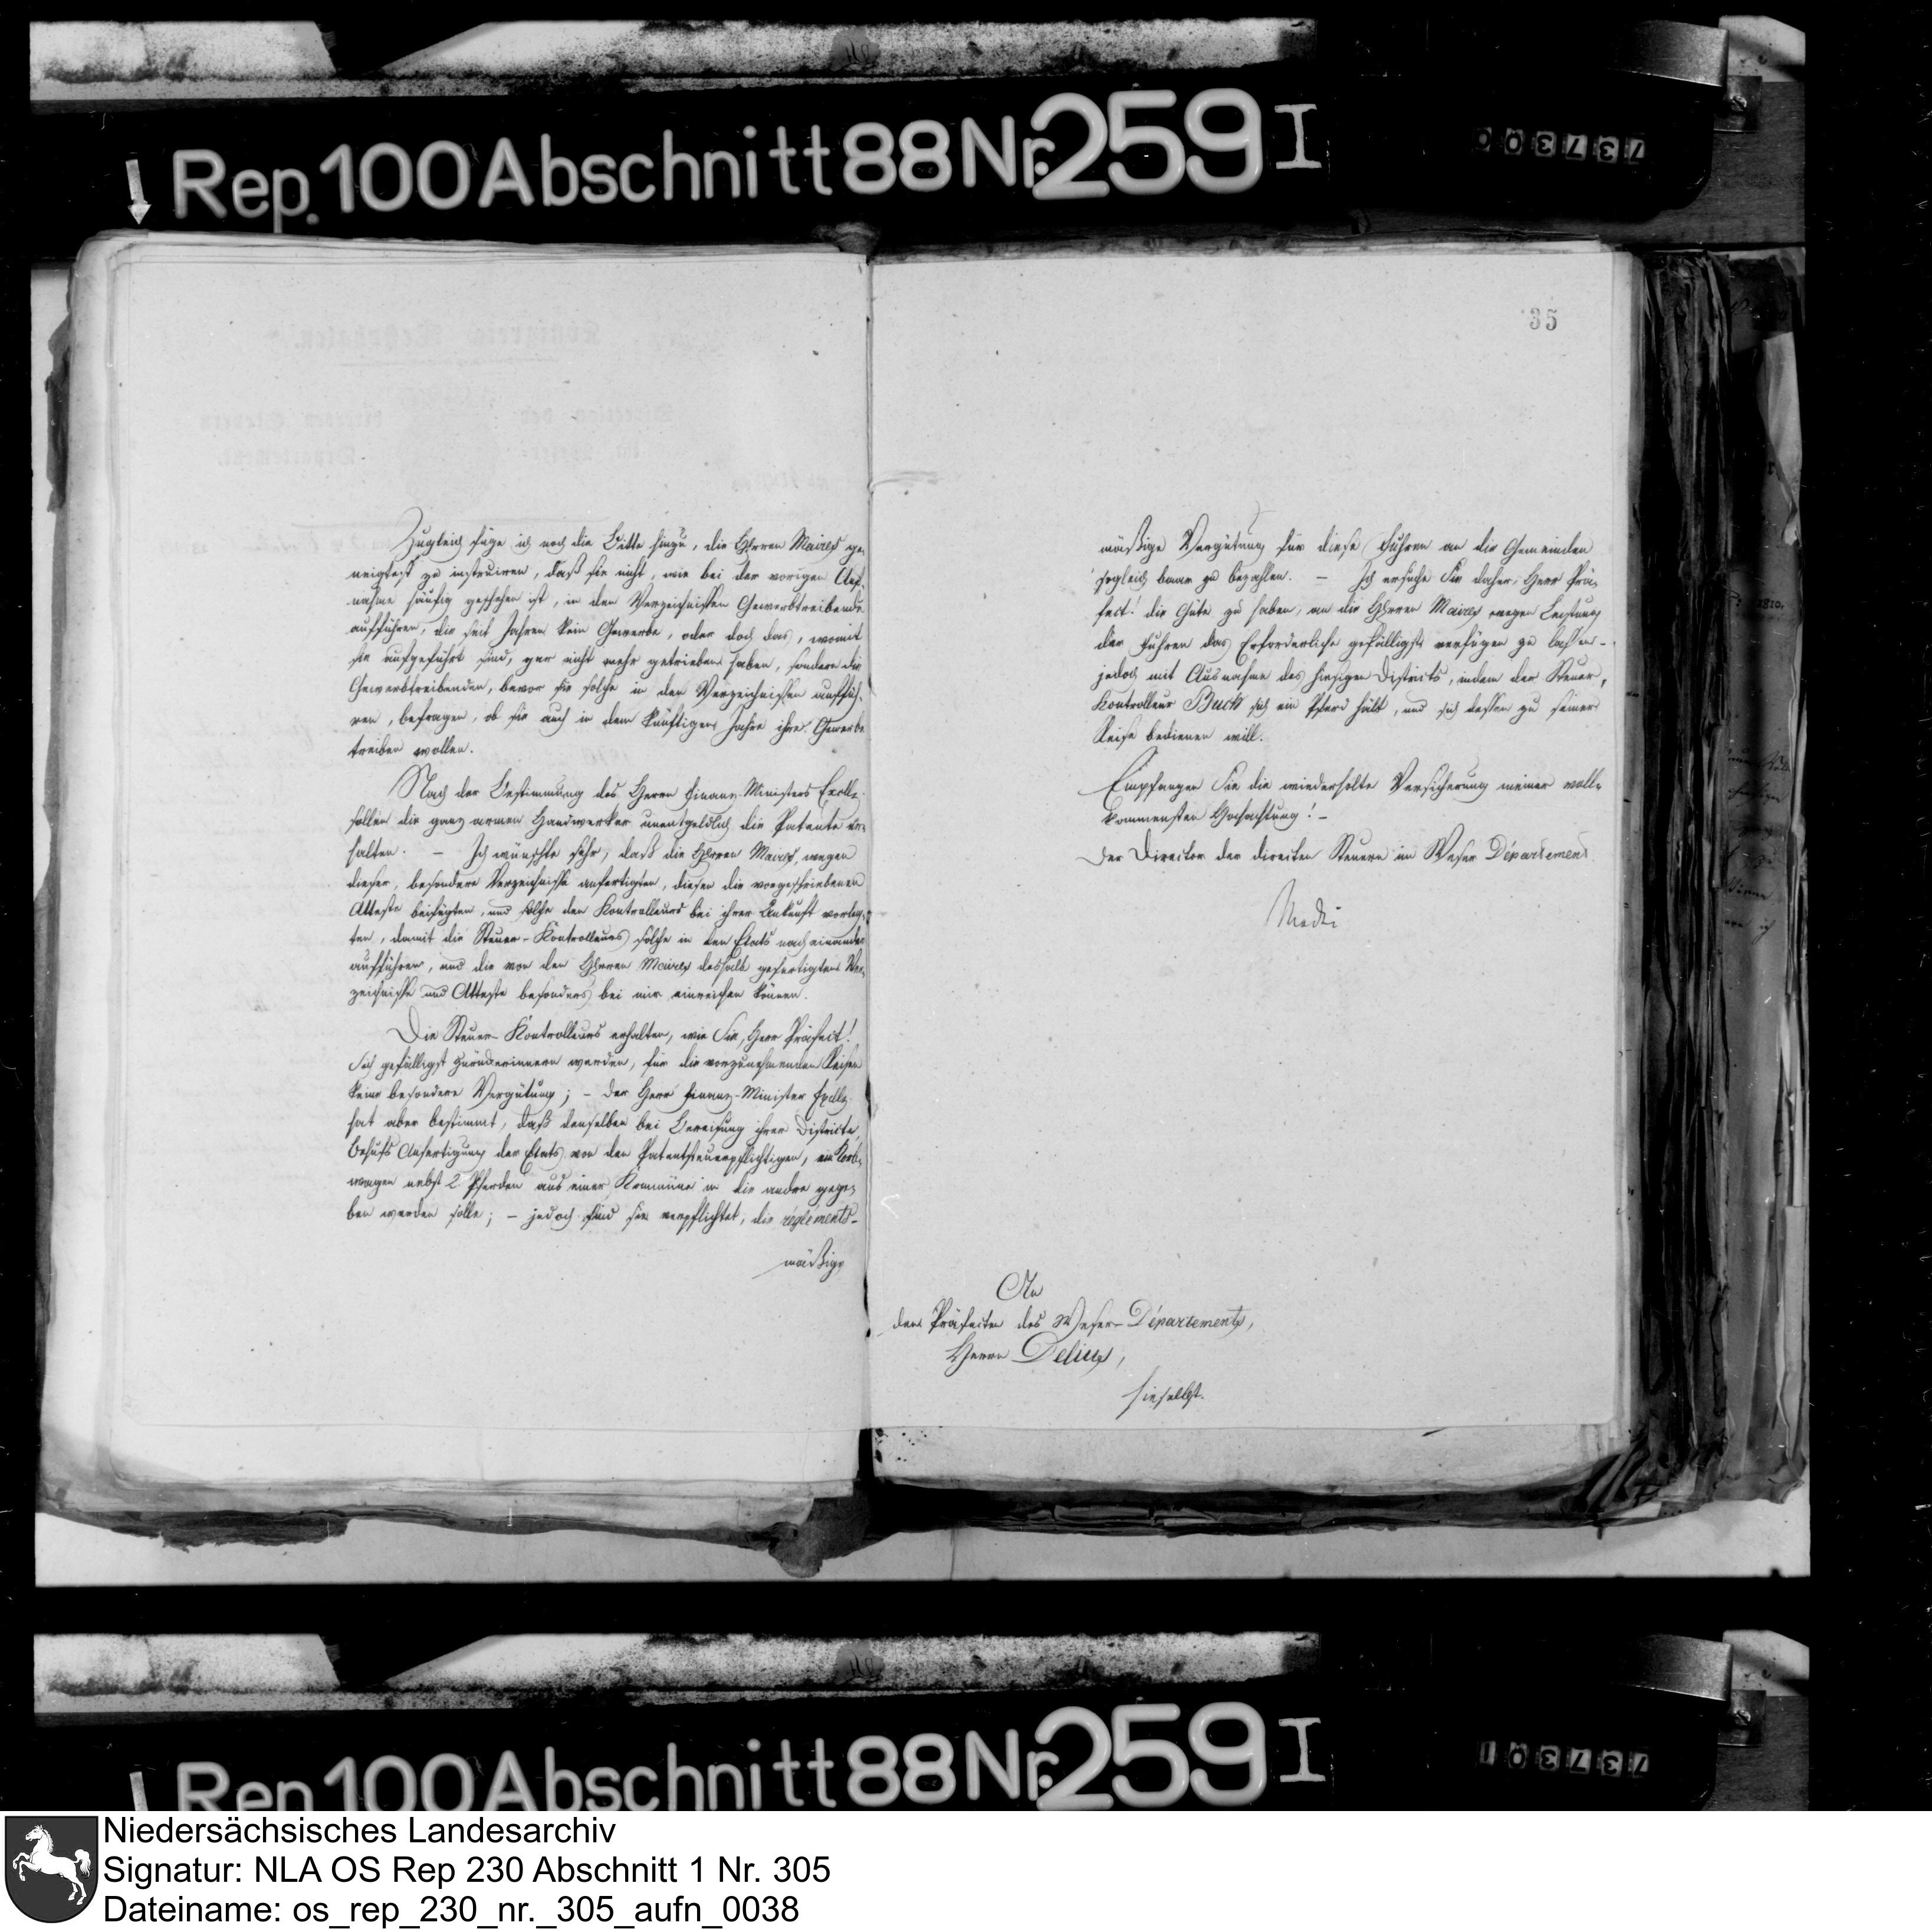 Rep. 100 Abschnitt 88 Nr. 259 I
737300
35
Zugleich füge ich noch die Bitte hinzu, die Herren Maires ge-
neigtest zu instruiren, daß sie nicht, wie bei der vorigen Auf-
nahme häufig geschehen ist, in den Verzeichnissen Gewerbtreibende
aufführen, die seit Jahren kein Gewerbe, oder doch das, womit
sie aufgeführt sind, gar nicht mehr getrieben haben, sondern die
Gewerbtreibenden, bevor sie solche in den Verzeichnissen auffüh-
ren, befragen, ob sie auch in dem künftigen Jahre ihre Gewerbe
treiben wollen.
Nach der Bestimmung des Herrn Finanz-Ministers Excellz.
sollen die ganz armen Handwerker unentgeldlich die Patente er-
halten. – Ich wünschte sehr, daß die Herren Maires, wegen
dieser, besondere Verzeichnisse anfertigten, diesen die vorgeschriebenen
Atteste beifügten, und solche den Kontrolleurs bei ihrer Ankunft vorleg-
ten, damit die Steuer-Kontrolleurs solche in den Etats nach einander
aufführen, und die von den Herren Maires deshalb gefertigten Ver-
zeichnisse und Atteste besonders bei mir einreichen können.
Die Steuer-Kontrolleurs erhalten, wie Sie, Herr Präfect!
Sich gefälligst zurückerinnern werden, für die vorzunehmenden Reisen
keine besondere Vergütung; – der Herr Finanz-Minister Excellz.
hat aber bestimmt, daß denselben bei Bereisung ihrer Districte,
behufs Anfertigung der Etats von den Patentsteuerpflichtigen, ein Korb-
wagen nebst 2 Pferden aus einer Kommüne in die andre gege-
ben werden solle; – jedoch sind sie verpflichtet, die réglements-
mäßige
mäßige Vergütung für diese Fuhren an die Gemeinden
sogleich baar zu bezahlen. – Ich ersuche Sie daher, Herr Prä-
fect! die Güte zu haben, an die Herren Maires wegen Leistung
der Fuhren das Erforderliche gefälligst verfügen zu lassen –
jedoch mit Ausnahme des hiesigen Districts, indem der Steuer-
Kontrolleur Buck sich ein Pferd hält, und sich dessen zu seiner
Reise bedienen will.
Empfangen Sie die wiederholte Versicherung meiner voll-
kommensten Hochachtung! –
Der Director der directen Steuern im Weser Département
An
den Präfecten des Weser-Departements,
Herrn Delius,
hieselbst.
Rep 100 Abschnitt 88 Nr. 259 I
737301
Niedersächsisches Landesarchiv
Signatur: NLA OS Rep 230 Abschnitt 1 Nr. 305
Dateiname: os_rep_230_nr._305_aufn_0038